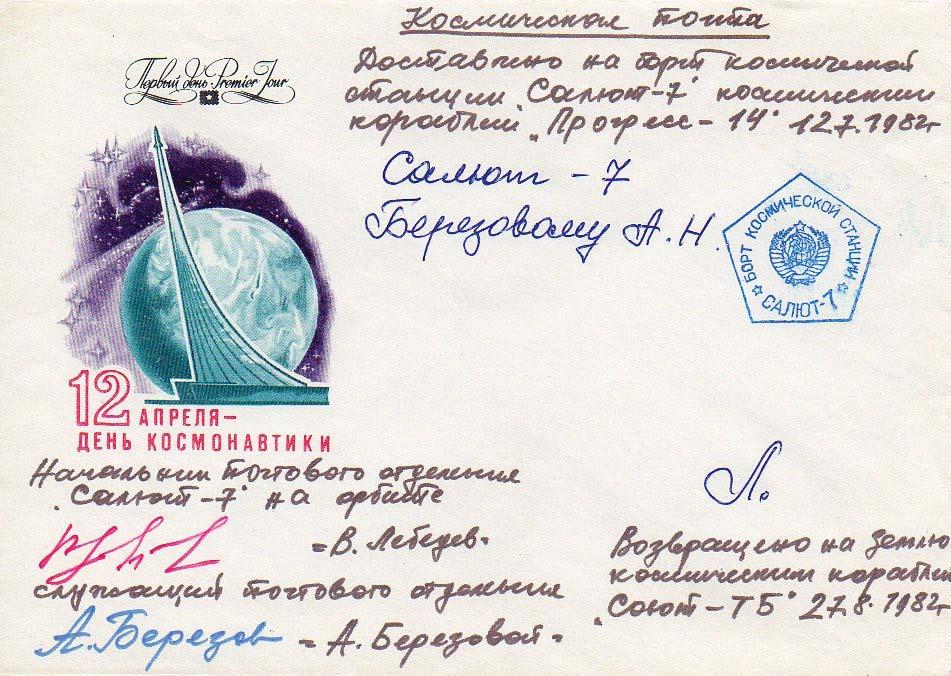 Космическая почта
Доставлено на борт космической
станции „Салют-7" космическим
кораблем „Прогресс-14" 12.7.1982г
Первый день · Premier Jour
Салют - 7
Березовому А. Н.
БОРТ КОСМИЧЕСКОЙ СТАНЦИИ
САЛЮТ-7
12 АПРЕЛЯ –
ДЕНЬ КОСМОНАВТИКИ
Начальник почтового отделение
„Салют-7" на орбите
= В. Лебедев =
служащий почтового отделение
А. Березов = А. Березовой =
Л.
Возвращено на Землю
космическим корабле
„Союют-Т5" 27.8.1982г